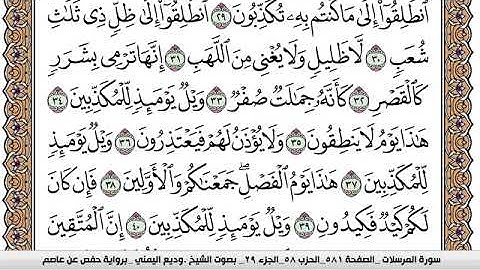 ٱنطَلِقُوٓا۟ إِلَىٰ مَا كُنتُم بِهِۦ تُكَذِّبُونَ ٢٩ ٱنطَلِقُوٓا۟ إِلَىٰ ظِلٍّ ذِى ثَلَٰثِ
شُعَبٍ ٣٠ لَّا ظَلِيلٍ وَلَا يُغْنِى مِنَ ٱللَّهَبِ ٣١ إِنَّهَا تَرْمِى بِشَرَرٍ
كَٱلْقَصْرِ ٣٢ كَأَنَّهُۥ جِمَٰلَتٌ صُفْرٌ ٣٣ وَيْلٌ يَوْمَئِذٍ لِّلْمُكَذِّبِينَ ٣٤
هَٰذَا يَوْمُ لَا يَنطِقُونَ ٣٥ وَلَا يُؤْذَنُ لَهُمْ فَيَعْتَذِرُونَ ٣٦ وَيْلٌ يَوْمَئِذٍ
لِّلْمُكَذِّبِينَ ٣٧ هَٰذَا يَوْمُ ٱلْفَصْلِ ۖ جَمَعْنَٰكُمْ وَٱلْأَوَّلِينَ ٣٨ فَإِن كَانَ
لَكُمْ كَيْدٌ فَكِيدُونِ ٣٩ وَيْلٌ يَوْمَئِذٍ لِّلْمُكَذِّبِينَ ٤٠ إِنَّ ٱلْمُتَّقِينَ
سورة المرسلات _الصفحة ٥٨١_ الحزب ٥٨_الجزء ٢٩_ بصوت الشيخ .وديع اليمني _برواية حفص عن عاصم